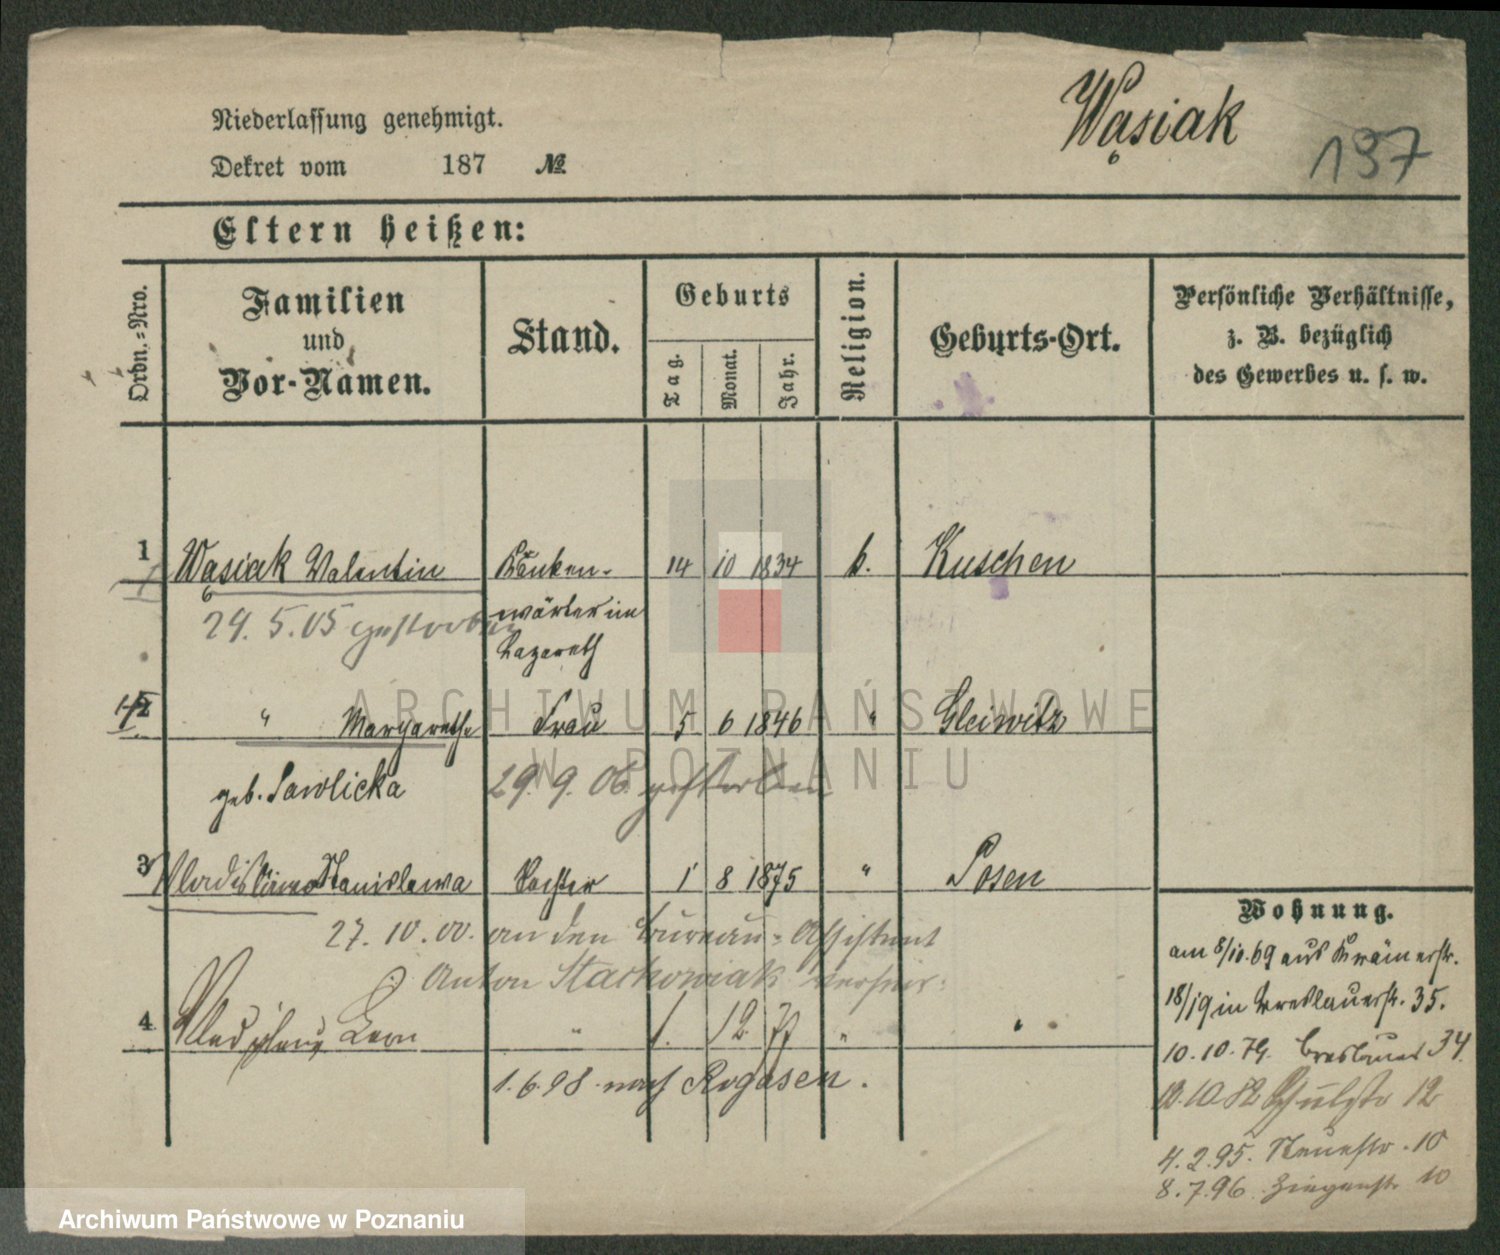 Niederlassung genehmigt.
Wąsiak
197
Dekret vom 187 №
Eltern heißen:
Ordn.=Nro.
Familien
und
Vor-Namen.
Stand.
Geburts
Tag.
Monat.
Jahr.
Religion.
Geburts-Ort.
Persönliche Verhältnisse,
z. B. bezüglich
des Gewerbes u. s. w.
1 Wąsiak Valentin Kranken- 14 10 1834 k. Kuschen
29. 5. 05 gestorben wärter im
Lazareth
2 " Margarethe Frau 5 6 1846 " Gleiwitz
geb. Pawlicka 29. 9. 06. gestorben
3 Stanislawa Tochter 1 8 1875 " Posen
27. 10. 00. an den Bureau-Assistent
Anton Stachowiak verheir.
4 Leon " 1. 12 77 " "
1. 6. 98. nach Rogasen.
Wohnung.
am 8/10. 69 aus Krämerstr.
18/19 in Breslauerstr. 35.
10. 10. 79. Breslauer 34
10. 82 Schulstr 12
4. 2. 95. Neuestr. 10
8. 7. 96. Ziegenstr. 10
ARCHIWUM PAŃSTWOWE
W POZNANIU
Archiwum Państwowe w Poznaniu